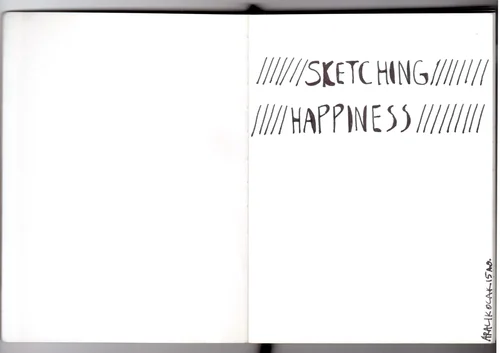 ///////SKETCHING///////
/////HAPPINESS/////////
ARALIK OCAK 15